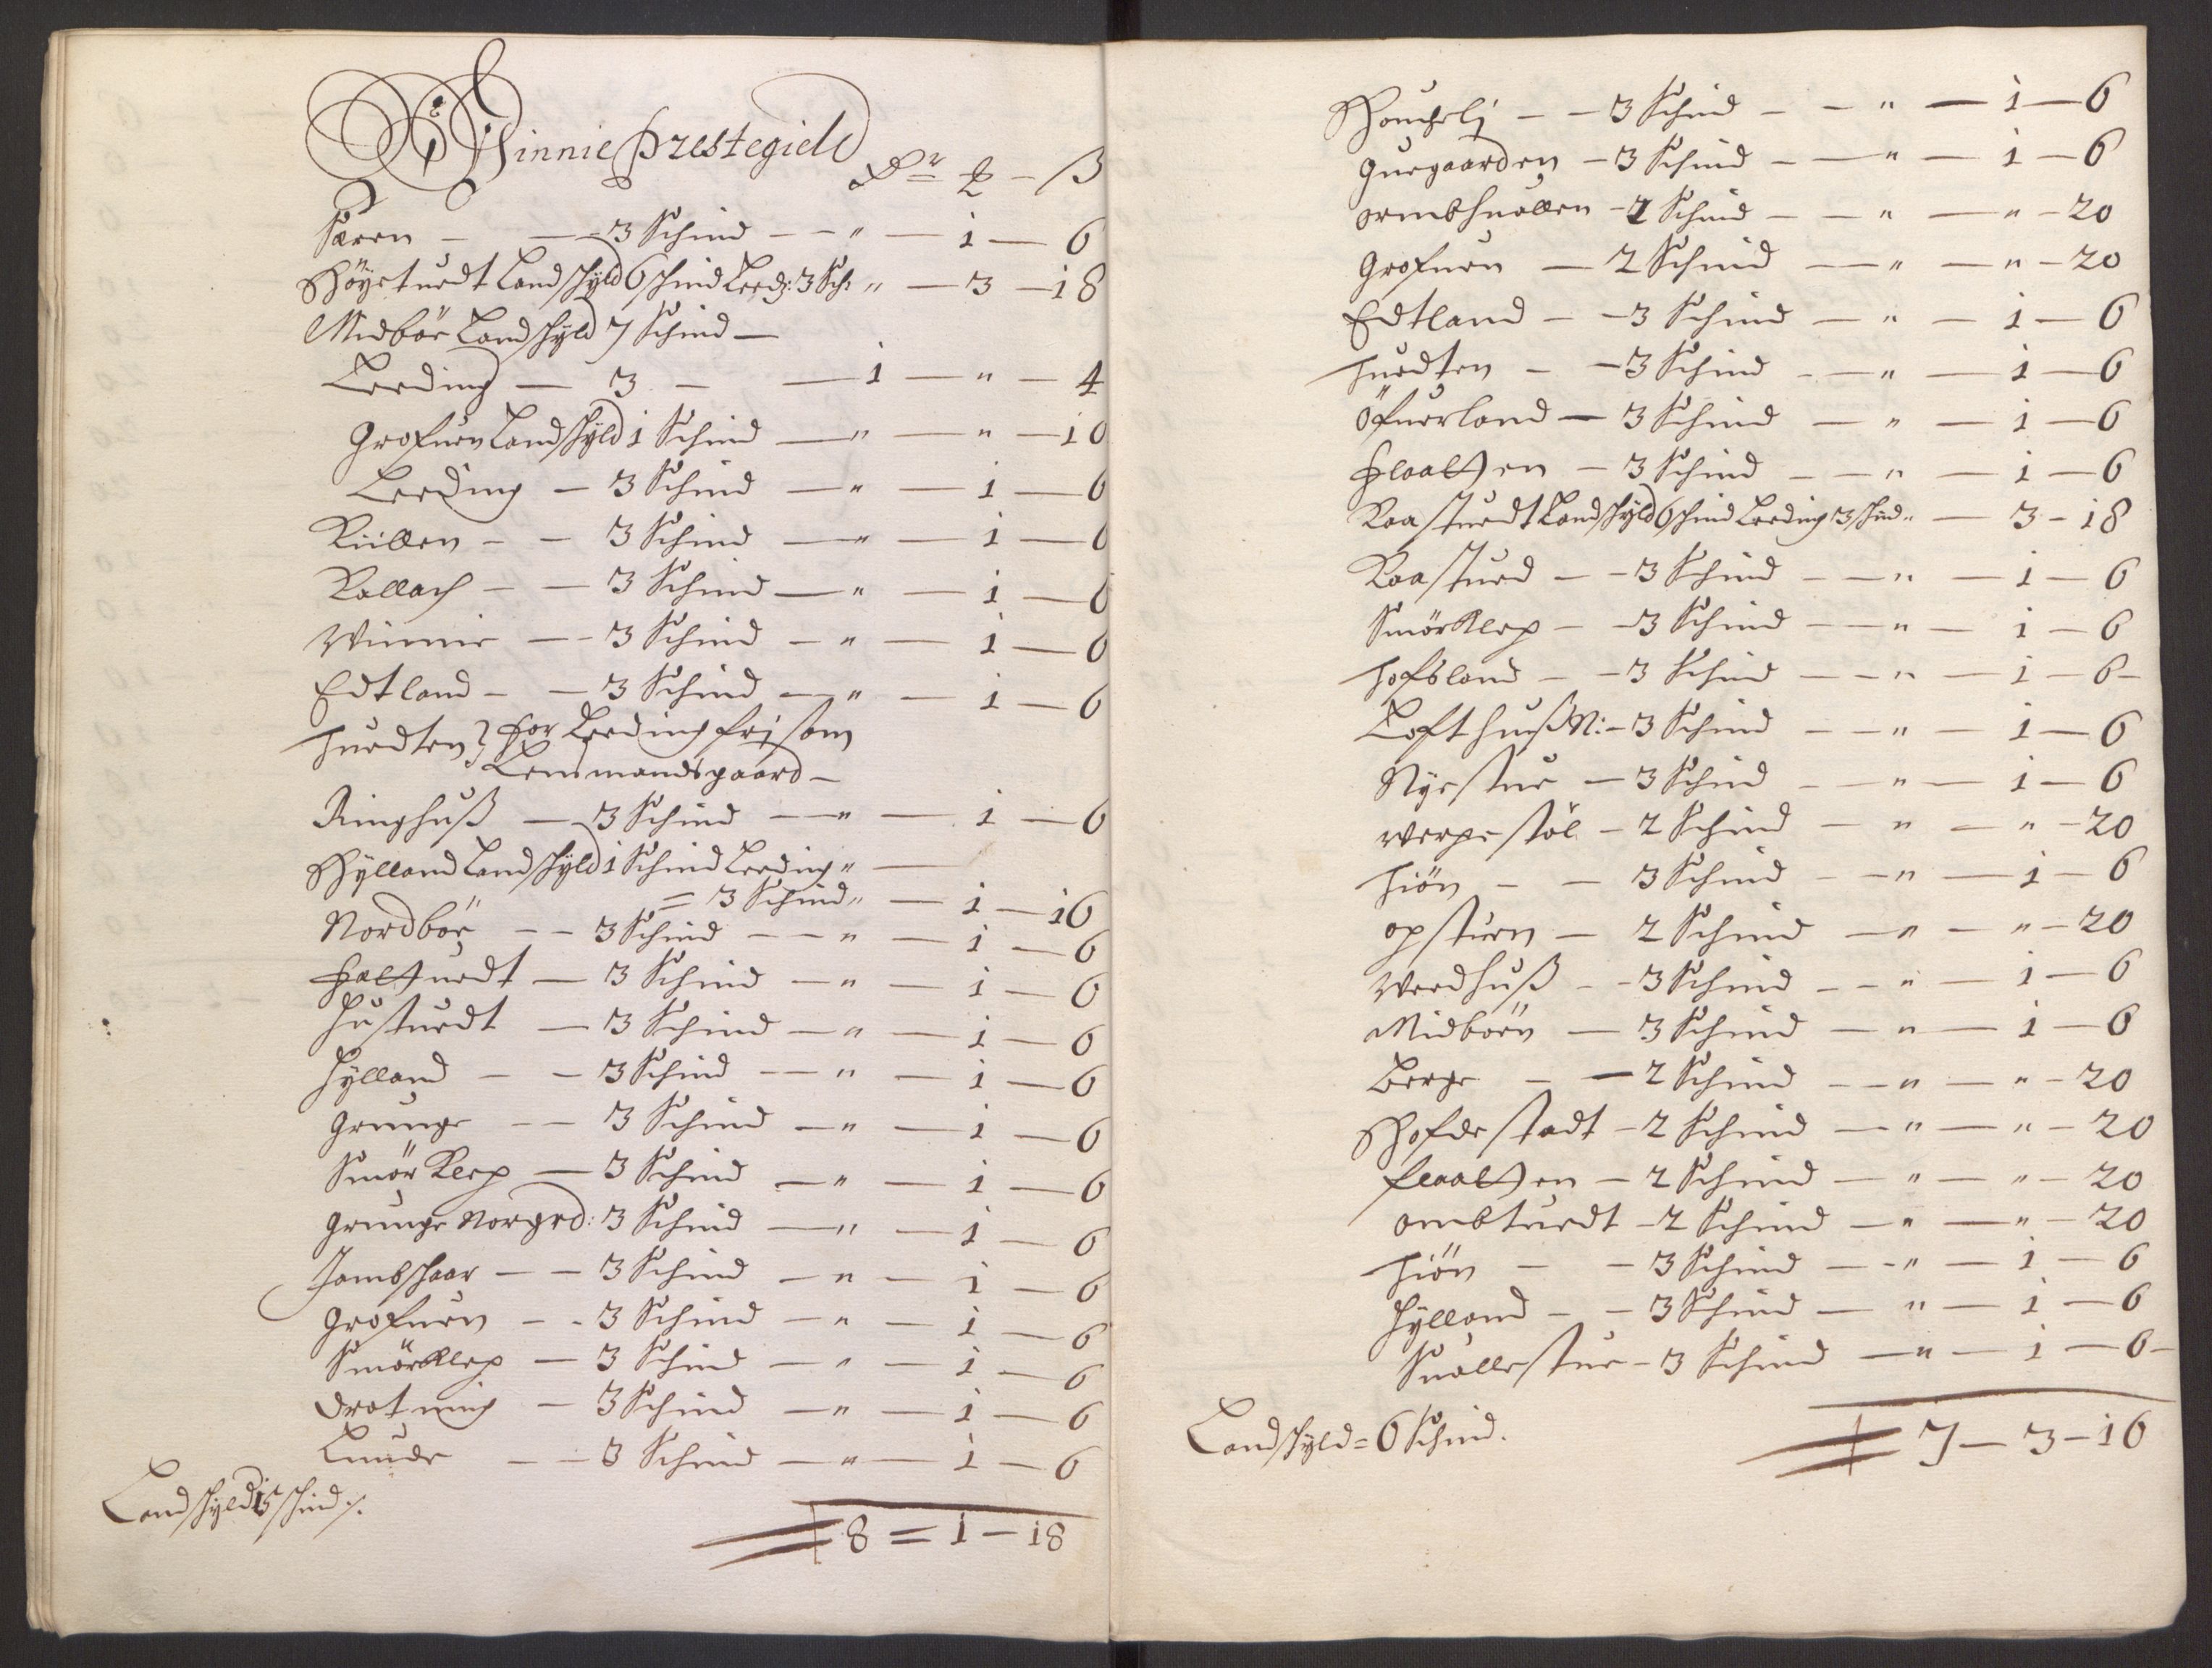 Winnie Præstegield
Dr — ß
Særen — — 3 Schind — — " — 1 — 6
Høyetuedt Landschyld 6 schind Leed: 3 Sch: " — 3 — 18
Midbøe Landschyld 7 Schind —
Leeding — 3 — — 1 — " — 4
Grofuen Landschyld 1 Schind — " — " — 10
Leeding — 3 Schind — " — 1 — 6
Kiillen — — 3 Schind — " — 1 — 6
Rollach — — 3 Schind — " — 1 — 6
Winnie — — 3 Schind — " — 1 — 6
Edtland — — 3 Schind — " — 1 — 6
Huedten } for Leeding frj som
Lensmandsgaard —
Ringhuß — 3 Schind — " — 1 — 6
Hylland Landschyld 1 Schind Leeding " —
= 3 Schind " — 1 — 16
Nordbøe — — 3 Schind — — " — 1 — 6
Faltuedt — 3 Schind — " — 1 — 6
Hustuedt — 3 Schind — " — 1 — 6
Hylland — — 3 Schind — — " — 1 — 6
Grunge — — 3 Schind — " — 1 — 6
Smør Klep — 3 Schind — " — 1 — 6
Grunge Norgrd: 3 Schind — " — 1 — 6
Jambschaar — — 3 Schind — " — 1 — 6
Grofuen — — 3 Schind — " — 1 — 6
Smørklep — 3 Schind — " — 1 — 6
Drotning — 3 Schind — " — 1 — 6
Lunde — — 3 Schind — " — 1 — 6
Landschyld 15 schind ./.
8 = 1 — 18
Houchelj — — 3 Schind — — " — 1 — 6
Guegaarden — 3 Schind — — " — 1 — 6
Ormbhuallen — 2 Schind — — " — " — 20
Grofuen — 2 Schind — " — " — 20
Edtland — — 3 Schind — " — 1 — 6
Huedten — — 3 Schind — — " — 1 — 6
Øfuerland — 3 Schind — " — 1 — 6
Flaatten — 3 Schind — — " — 1 — 6
Raastuedt Landschyld 6 schind Leeding 3 schid " — 3 — 18
Raastued — — 3 Schind — — " — 1 — 6
Smørklep — — 3 Schind — — " — 1 — 6
Hofsland — — 3 Schind — — " — 1 — 6 —
Lofthuß N: — 3 Schind — — " — 1 — 6
Nyestue — 3 Schind — — " — 1 — 6
Werpestøl — 2 Schind — " — " — 20
Hiøn — — 3 Schind — — " — 1 — 6
Opstuen — 2 Schind — " — " — 20
Wredhuß — — 3 Schind — — " — 1 — 6
Midbøen — 3 Schind — " — 1 — 6
Berge — — 2 Schind — — " — " — 20
Hofdestadt — 2 Schind — " — " — 20
flaatten — 2 Schind — " — " — 20
Ombtuedt — 2 Schind — " — " — 20
Hiøn — — 3 Schind — — " — 1 — 6
Hylland — — 3 Schind — " — 1 — 6
Suallestue — 3 Schind — " — 1 — 6 —
Landschyld = 6 Schind.
7 — 3 — 16